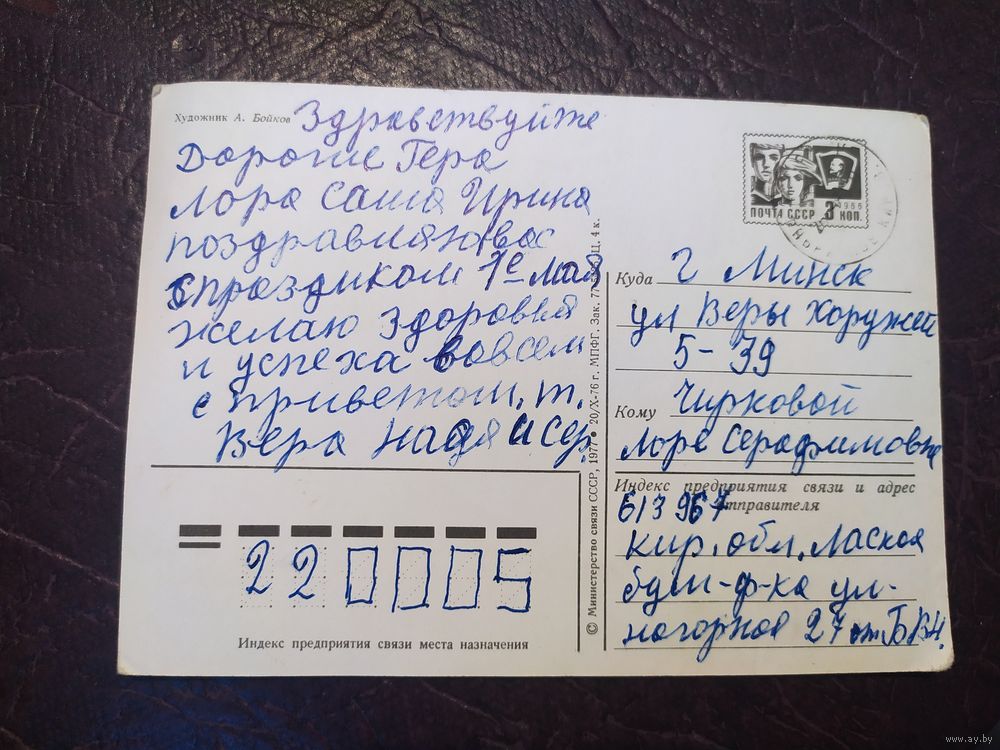 Художник А. Бойков
Здравствуйте
Дорогие Гера
Лора Саша Ирина
поздравляю вас
с праздиком 1е мая
желаю здоровья
и успеха вовсем
с приветом. т.
Вера Надя и Сер.
ПОЧТА СССР 3 КОП.
1966
Куда г Минск
ул Веры Хоружей
5-39
Кому Чирковой
Лоре Серафимовне
Индекс предприятия связи и адрес отправителя
613967
Кир. обл.
бум-ф-ка ул.
нагорная 27 от БВН.
220005
Индекс предприятия связи места назначения
© Министерство связи СССР, 1977 • 20/X-76 г. МПФГ. Зак. Ц. 4 к.
www.ay.by